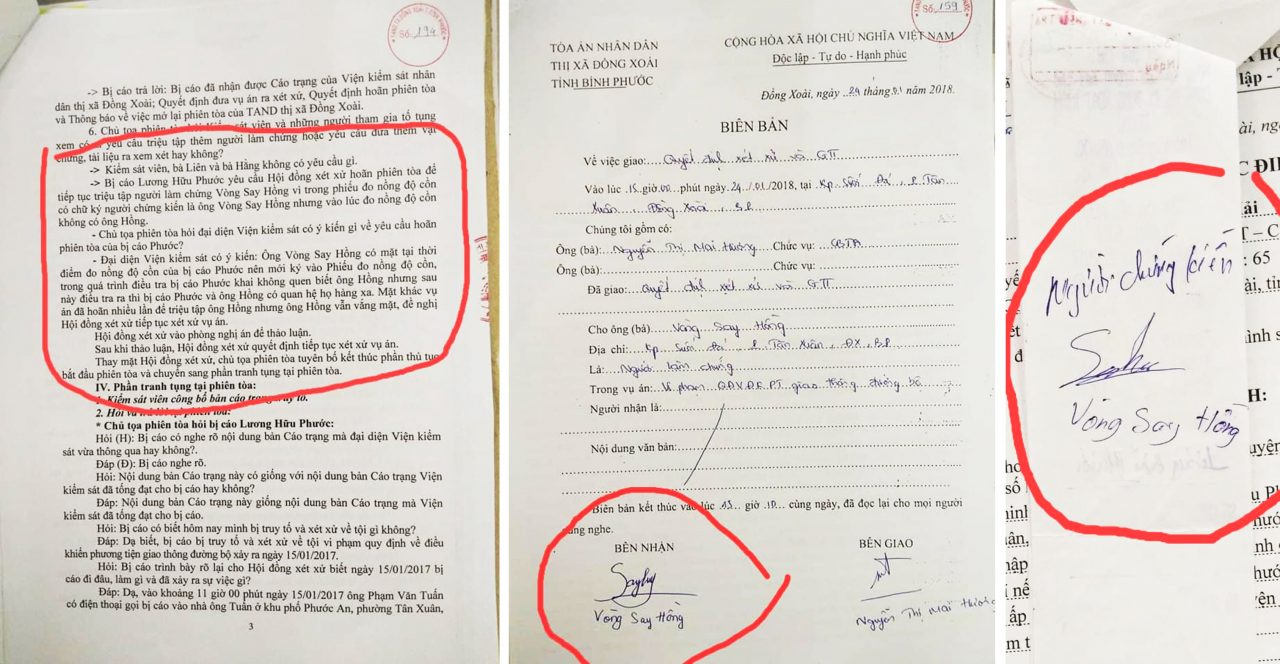 Số: 194
-> Bị cáo trả lời: Bị cáo đã nhận được Cáo trạng của Viện kiểm sát nhân
dân thị xã Đồng Xoài; Quyết định đưa vụ án ra xét xử, Quyết định hoãn phiên tòa
và Thông báo về việc mở lại phiên tòa của TAND thị xã Đồng Xoài.
6. Chủ tọa phiên tòa hỏi Kiểm sát viên và những người tham gia tố tụng
xem có ai yêu cầu triệu tập thêm người làm chứng hoặc yêu cầu đưa thêm vật
chứng, tài liệu ra xem xét hay không?
-> Kiểm sát viên, bà Liên và bà Hằng không có yêu cầu gì.
-> Bị cáo Lương Hữu Phước yêu cầu Hội đồng xét xử hoãn phiên tòa để
tiếp tục triệu tập người làm chứng Vòng Say Hồng vì trong phiếu đo nồng độ cồn
có chữ ký người chứng kiến là ông Vòng Say Hồng nhưng vào lúc đo nồng độ cồn
không có ông Hồng.
- Chủ tọa phiên tòa hỏi đại diện Viện kiểm sát có ý kiến gì về yêu cầu hoãn
phiên tòa của bị cáo Phước?
- Đại diện Viện kiểm sát có ý kiến: Ông Vòng Say Hồng có mặt tại thời
điểm đo nồng độ cồn của bị cáo Phước nên mới ký vào Phiếu đo nồng độ cồn,
trong quá trình điều tra bị cáo Phước khai không quen biết ông Hồng nhưng sau
này điều tra ra thì bị cáo Phước và ông Hồng có quan hệ họ hàng xa. Mặt khác vụ
án đã hoãn nhiều lần để triệu tập ông Hồng nhưng ông Hồng vẫn vắng mặt, đề nghị
Hội đồng xét xử tiếp tục xét xử vụ án.
Hội đồng xét xử vào phòng nghị án để thảo luận.
Sau khi thảo luận, Hội đồng xét xử quyết định tiếp tục xét xử vụ án.
Thay mặt Hội đồng xét xử, chủ tọa phiên tòa tuyên bố kết thúc phần thủ tục
bắt đầu phiên tòa và chuyển sang phần tranh tụng tại phiên tòa.
IV. Phần tranh tụng tại phiên tòa:
1. Kiểm sát viên công bố bản cáo trạng
2. Hỏi và trả lời tại phiên tòa:
* Chủ tọa phiên tòa hỏi bị cáo Lương Hữu Phước:
Hỏi (H): Bị cáo có nghe rõ nội dung bản Cáo trạng mà đại diện Viện kiểm
sát vừa thông qua hay không?.
Đáp (Đ): Bị cáo nghe rõ.
Hỏi: Nội dung bản Cáo trạng này có giống với nội dung bản Cáo trạng Viện
kiểm sát đã tống đạt cho bị cáo hay không?
Đáp: Nội dung bản Cáo trạng này giống nội dung bản Cáo trạng mà Viện
kiểm sát đã tống đạt cho bị cáo.
Hỏi: Bị cáo có biết hôm nay mình bị truy tố và xét xử về tội gì không?
Đáp: Dạ biết, bị cáo bị truy tố và xét xử về tội vi phạm quy định về điều
khiển phương tiện giao thông đường bộ xảy ra ngày 15/01/2017.
Hỏi: Bị cáo trình bày rõ lại cho Hội đồng xét xử biết ngày 15/01/2017 bị
cáo đi đâu, làm gì và đã xảy ra sự việc gì?
Đáp: Dạ, vào khoảng 11 giờ 00 phút ngày 15/01/2017 ông Phạm Văn Tuấn
có điện thoại gọi bị cáo vào nhà ông Tuấn ở khu phố Phước An, phường Tân Xuân,
3
Số: 159
TÒA ÁN NHÂN DÂN
THỊ XÃ ĐỒNG XOÀI
TỈNH BÌNH PHƯỚC
CỘNG HÒA XÃ HỘI CHỦ NGHĨA VIỆT NAM
Độc lập - Tự do - Hạnh phúc
Đồng Xoài, ngày 24 tháng 01 năm 2018.
BIÊN BẢN
Về việc giao: Quyết định xét xử và GTT
Vào lúc 15 giờ 00 phút ngày 24/01/2018, tại Kp. Suối Đá, P. Tân
Xuân, Đồng Xoài, BP
Chúng tôi gồm có:
Ông (bà): Nguyễn Thị Mai Hương Chức vụ: CBTA
Ông (bà): Chức vụ:
Đã giao: Quyết định xét xử và GTT
Cho ông (bà) Vòng Say Hồng
Địa chỉ: Kp. Suối Đá, P. Tân Xuân, ĐX, BP
Là: Người làm chứng
Trong vụ án: Vi phạm QĐVĐKPT giao thông đường bộ
Người nhận là:
Nội dung văn bản:
Biên bản kết thúc vào lúc 15 giờ 10 cùng ngày, đã đọc lại cho mọi người
cùng nghe.
BÊN NHẬN BÊN GIAO
Vòng Say Hồng
Nguyễn Thị Mai Hương
Người chứng kiến
Vòng Say Hồng
: 65